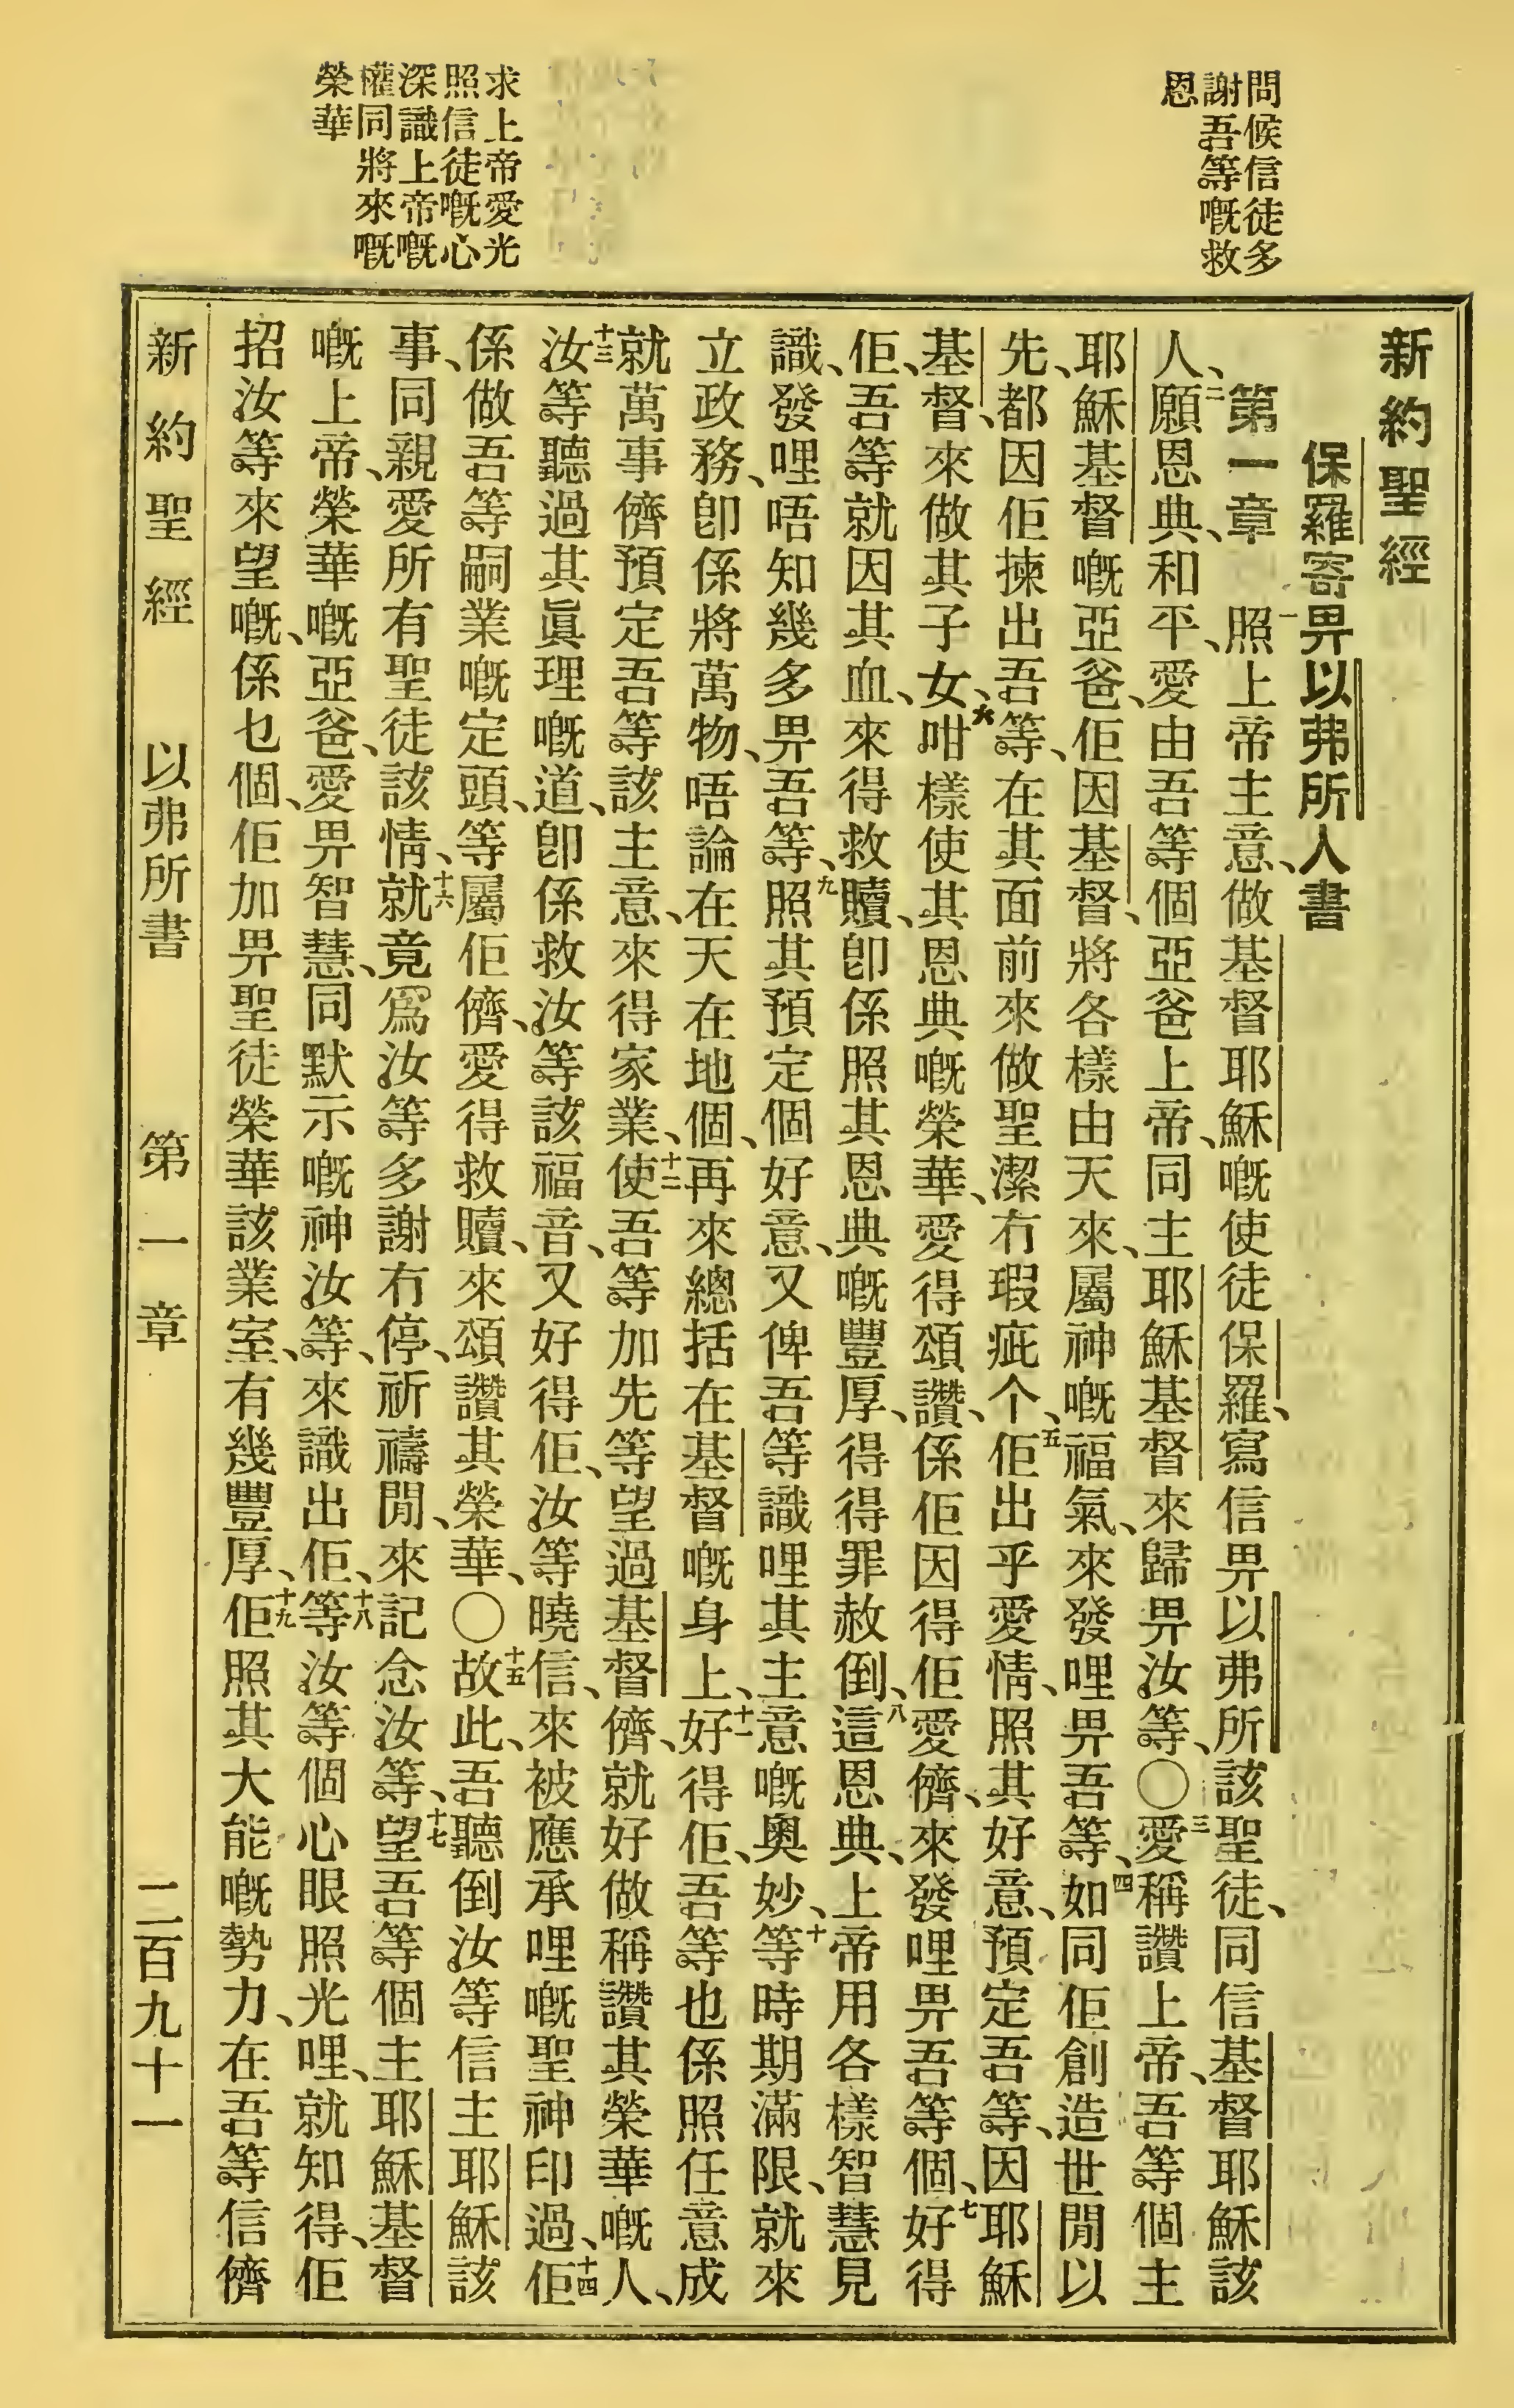 問候信徒多
謝吾等嘅救
恩
求上帝愛光
照信徒嘅心
深識上帝嘅
權同將來嘅
榮華
新約聖經
保羅寄畀以弗所人書
第一章 一照上帝主意、做基督耶穌嘅使徒保羅、寫信畀以弗所該聖徒、同信基督耶穌該
人、二願恩典、和平、愛由吾等個亞爸上帝、同主耶穌基督來歸畀汝等、〇三愛稱讚上帝、吾等個主
耶穌基督嘅亞爸、佢因基督、將各樣由天來、屬神嘅福氣、來發哩畀吾等、四如同佢創造世閒以
先、都因佢揀出吾等、在其面前來做聖潔冇瑕疵个、五佢出乎愛情、照其好意、預定吾等、因耶穌
基督、來做其子女、六咁樣使其恩典嘅榮華、愛得頌讚、係佢因得佢愛儕、來發哩畀吾等個、七好得
佢、吾等就因其血、來得救贖、卽係照其恩典嘅豐厚、得得罪赦倒、八這恩典、上帝用各樣智慧見
識、發哩唔知幾多畀吾等、九照其預定個好意、又俾吾等識哩其主意嘅奧妙、十等時期滿限、就來
立政務、卽係將萬物、唔論在天在地個、再來總括在基督嘅身上、十一好得佢、吾等也係照任意成
就萬事儕預定吾等該主意、來得家業、十二使吾等加先等望過基督儕、就好做稱讚其榮華嘅人、
十三汝等聽過其眞理嘅道、卽係救汝等該福音、又好得佢、汝等曉信、來被應承哩嘅聖神印過、十四佢
係做吾等嗣業嘅定頭、等屬佢儕、愛得救贖、來頌讚其榮華、〇十五故此、吾聽倒汝等信主耶穌該
事、同親愛所有聖徒該情、十六就竟爲汝等多謝冇停、祈禱閒、來記念汝等、十七望吾等個主耶穌基督
嘅上帝、榮華嘅亞爸、愛畀智慧、同默示嘅神汝等、來識出佢、十八等汝等個心眼照光哩、就知得、佢
招汝等來望嘅、係乜個、佢加畀聖徒榮華該業室、有幾豐厚、十九佢照其大能嘅勢力、在吾等信儕
新約聖經 以弗所書 第一章 二百九十一